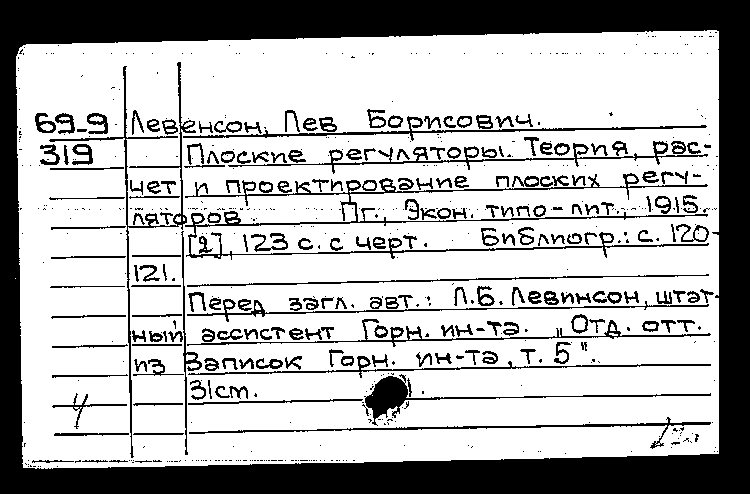 69-9 Левенсон, Лев Борисович.
319 Плоские регуляторы. Теория, рас-
чет и проектирование плоских регу-
ляторов. Пг., Экон. типо-лит., 1915.
[2], 123 с. с черт. Библиогр.: с. 120-
121.
Перед загл. авт.: Л.Б. Левинсон, штат-
ный ассистент Горн. ин-та. „Отд. отт.
из Записок Горн. ин-та, т. 5".
31 cm.
4